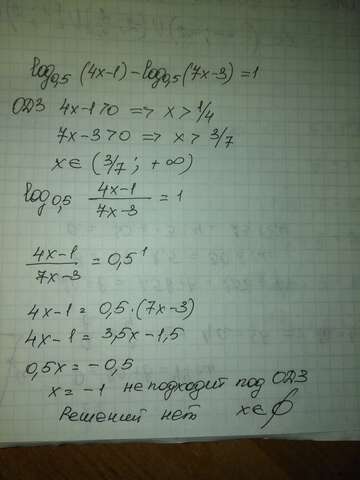 log₀,₅ (4x-1) - log₀,₅ (7x-3) = 1
ОДЗ 4x-1>0 => x > 1/4
7x-3>0 => x > 3/7
x ∈ (3/7 ; +∞)
log₀,₅ (4x-1)/(7x-3) = 1
(4x-1)/(7x-3) = 0,5¹
4x-1 = 0,5·(7x-3)
4x-1 = 3,5x-1,5
0,5x = -0,5
x = -1 не подходит под ОДЗ
Решений нет x∈ ∅